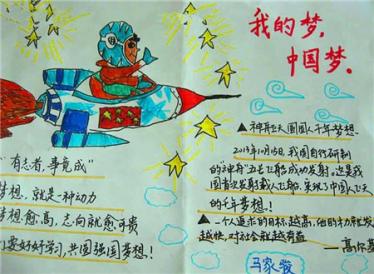 我的梦，
中国梦。
▲神舟飞天圆国人千年梦想.
2013年10月15日，我国自行研制
的"神舟"五号飞船成功发射。这是我
国首次发射载人飞船，实现了中国人飞天
的千年梦想！
▲一个人追求的目标越高，他的才力就发
越快，对社会就越有益
——高尔基
马家骏
"有志者，事竟成"
梦想，就是一种动力
梦想愈高，志向就愈可贵
们要好好学习，共圆强国梦想！